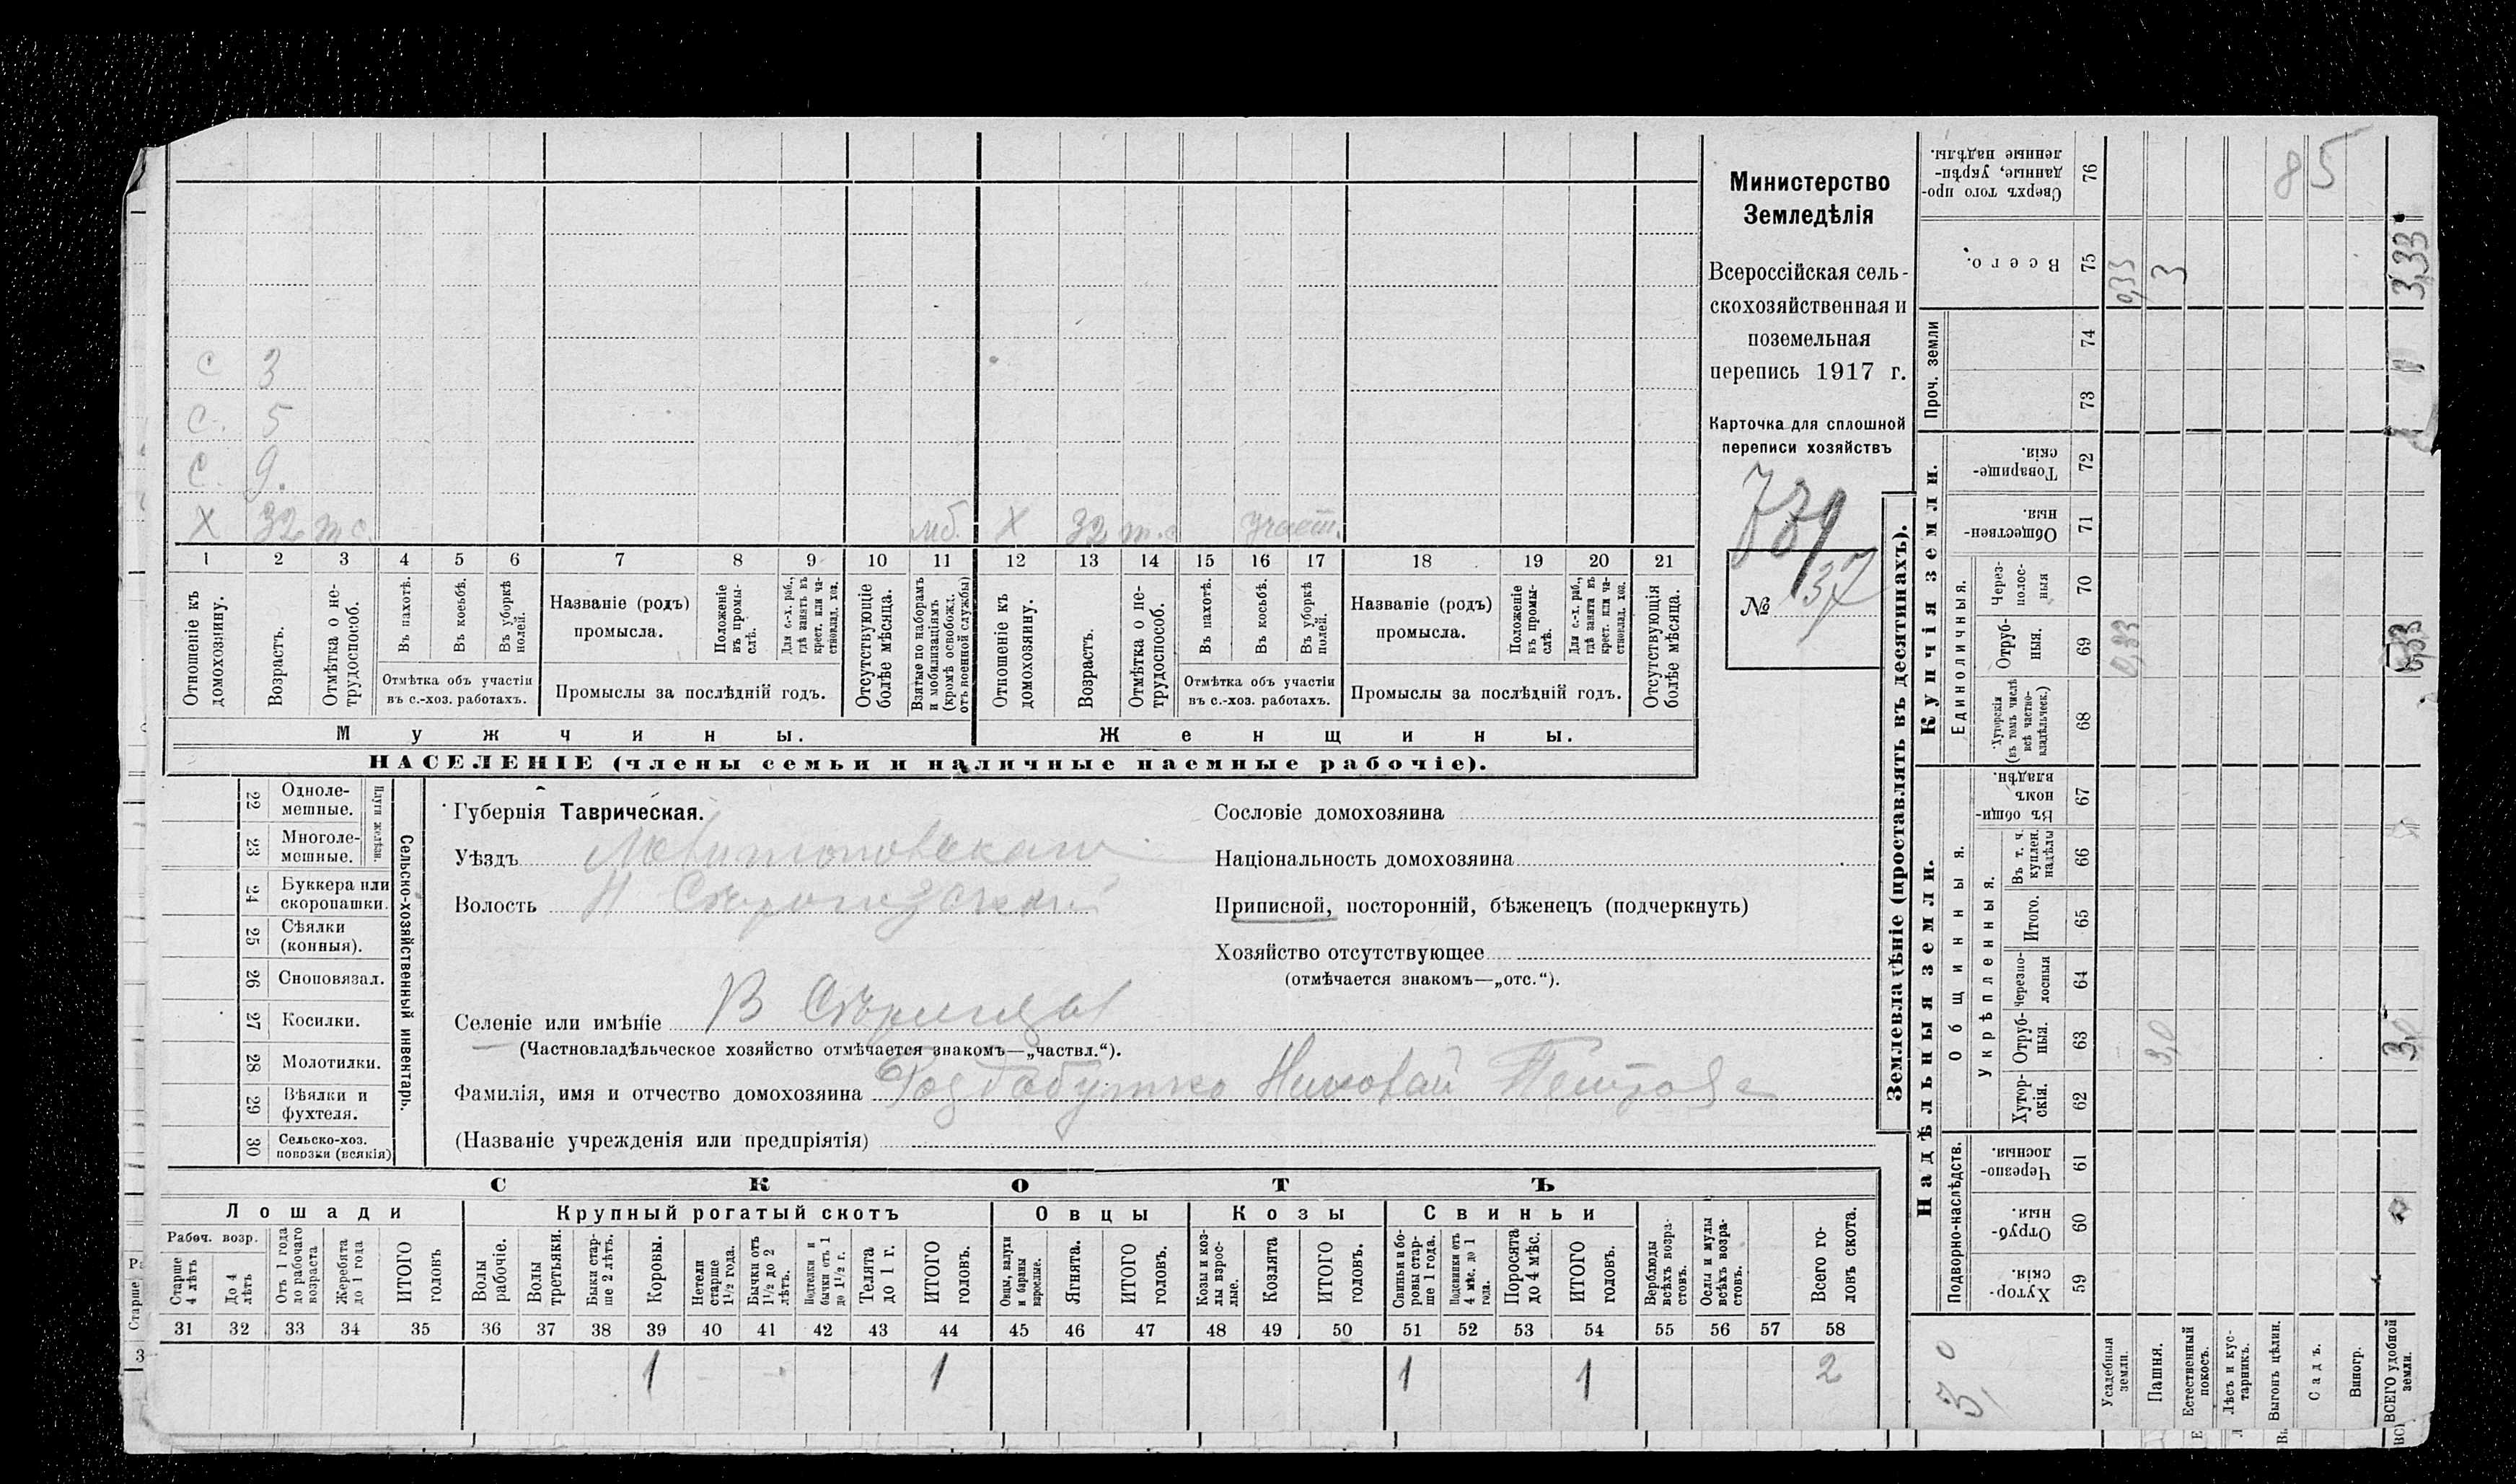 Министерство
Земледѣлія
Всероссійская сель-
скохозяйственная и
поземельная
перепись 1917 г.
Карточка для сплошной
переписи хозяйствъ
№ 137
С 3
С. 5
С. 9.
Х 32 т с. мб. Х 32 т. с участ.
1 2 3 4 5 6 7 8 9 10 11 12 13 14 15 16 17 18 19 20 21
Отношеніе къ домохозяину.
Возрастъ.
Отмѣтка о не-трудоспособ.
Въ пахотѣ.
Въ косьбѣ.
Въ уборкѣ полей.
Отмѣтка объ участіи
въ с.-хоз. работахъ.
Названіе (родъ)
промысла.
Положеніе въ промы-слѣ.
Для с.-х. раб., гдѣ занятъ въ крест. или ча-стновлад. хоз.
Промыслы за послѣдній годъ.
Отсутствующіе болѣе мѣсяца.
Взятые по наборамъ и мобилизаціямъ (кромѣ освобожд. отъ военной службы)
Отношеніе къ домохозяину.
Возрастъ.
Отмѣтка о не-трудоспособ.
Въ пахотѣ.
Въ косьбѣ.
Въ уборкѣ полей.
Отмѣтка объ участіи
въ с.-хоз. работахъ.
Названіе (родъ)
промысла.
Положеніе въ промы-слѣ.
Для с.-х. раб., гдѣ занята въ крест. или ча-стновлад. хоз.
Промыслы за послѣдній годъ.
Отсутствующія болѣе мѣсяца.
Мужчины.
Женщины.
НАСЕЛЕНІЕ (члены семьи и наличные наемные рабочіе).
22 Одноле-мешные.
23 Многоле-мешные.
Плуги желѣзн.
24 Буккера или скоропашки.
25 Сѣялки (конныя).
26 Сноповязал.
27 Косилки.
28 Молотилки.
29 Вѣялки и фухтеля.
30 Сельско-хоз. повозки (всякія)
Сельско-хозяйственный инвентарь.
Губернія Таврическая.
Уѣздъ
Волость
Селеніе или имѣніе
(Частновладѣльческое хозяйство отмѣчается знакомъ—„частвл.“).
Фамилія, имя и отчество домохозяина Николай
(Названіе учрежденія или предпріятія)
Сословіе домохозяина
Національность домохозяина
Приписной, посторонній, бѣженецъ (подчеркнуть)
Хозяйство отсутствующее
(отмѣчается знакомъ—„отс.“).
СКОТЪ
Лошади
Крупный рогатый скотъ
Овцы
Козы
Свиньи
Рабоч. возр.
Старше 4 лѣтъ
До 4 лѣтъ
Отъ 1 года до рабочаго возраста
Жеребята до 1 года
ИТОГО головъ
Волы рабочіе.
Волы третьяки.
Быки стар-ше 2 лѣтъ.
Коровы.
Нетели старше 1½ года.
Бычки отъ 1½ до 2 лѣтъ.
Подтелки и бычки отъ 1 до 1½ г.
Телята до 1 г.
ИТОГО головъ.
Овцы, валухи и бараны взрослые.
Ягнята.
ИТОГО головъ.
Козы и коз-лы взрос-лые.
Козлята
ИТОГО головъ.
Свиньи и бо-ровы стар-ше 1 года.
Подсвинки отъ 4 мѣс. до 1 года.
Поросята до 4 мѣс.
ИТОГО головъ.
Верблюды всѣхъ возра-стовъ.
Ослы и мулы всѣхъ возра-стовъ.
Всего го-ловъ скота.
31 32 33 34 35 36 37 38 39 40 41 42 43 44 45 46 47 48 49 50 51 52 53 54 55 56 57 58
1 1 1 1 2
Землевладѣніе (проставлять въ десятинахъ).
Купчія земли.
Надѣльныя земли.
Сверхъ того про-данные, укрѣп-ленные надѣлы. 76
85
Всего. 75 0,33 3 3,33
Проч. земли 74 73
Товарище-скія. 72
Обществен-ныя. 71
Единоличныя.
Через-полос-ныя 70
Отруб-ныя. 69 0,33
Хуторскія (въ томъ числѣ всѣ частно-владѣльческ.) 68
Общинныя.
Въ общи-номъ владѣн. 67
Укрѣпленныя.
Въ т. ч. куплен. надѣлы 66
Итого. 65
Черезпо-лосныя 64
Отруб-ныя. 63 3,0 3,0
Хутор-скія. 62
Подворно-наслѣдств.
Черезпо-лосныя. 61
Отруб-ныя. 60
Хутор-скія. 59
Усадебныя земли.
Пашня.
Естественный покосъ.
Лѣсъ и кус-тарникъ.
Выгонъ цѣлин.
Садъ.
Виногр.
ВСЕГО удобной земли.